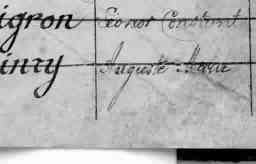 igron Léonor Constant
incy Auguste Marie